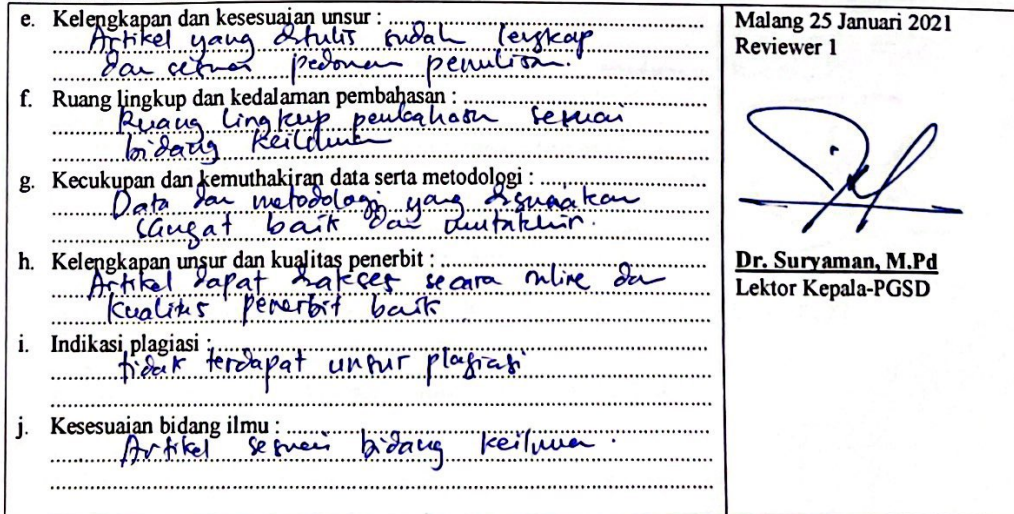 e. Kelengkapan dan kesesuaian unsur :
Artikel yang ditulis sudah lengkap
dan sesuai pedoman penulisan.
f. Ruang lingkup dan kedalaman pembahasan :
Ruang lingkup pembahasan sesuai
bidang keilmuan
g. Kecukupan dan kemuthakiran data serta metodologi :
Data dan metodologi yang digunakan
sangat baik dan mutakhir.
h. Kelengkapan unsur dan kualitas penerbit :
Artikel dapat diakses secara online dan
kualitas penerbit baik
i. Indikasi plagiasi :
tidak terdapat unsur plagiasi
j. Kesesuaian bidang ilmu :
Artikel sesuai bidang keilmuan.
Malang 25 Januari 2021
Reviewer 1
Dr. Suryaman, M.Pd
Lektor Kepala-PGSD